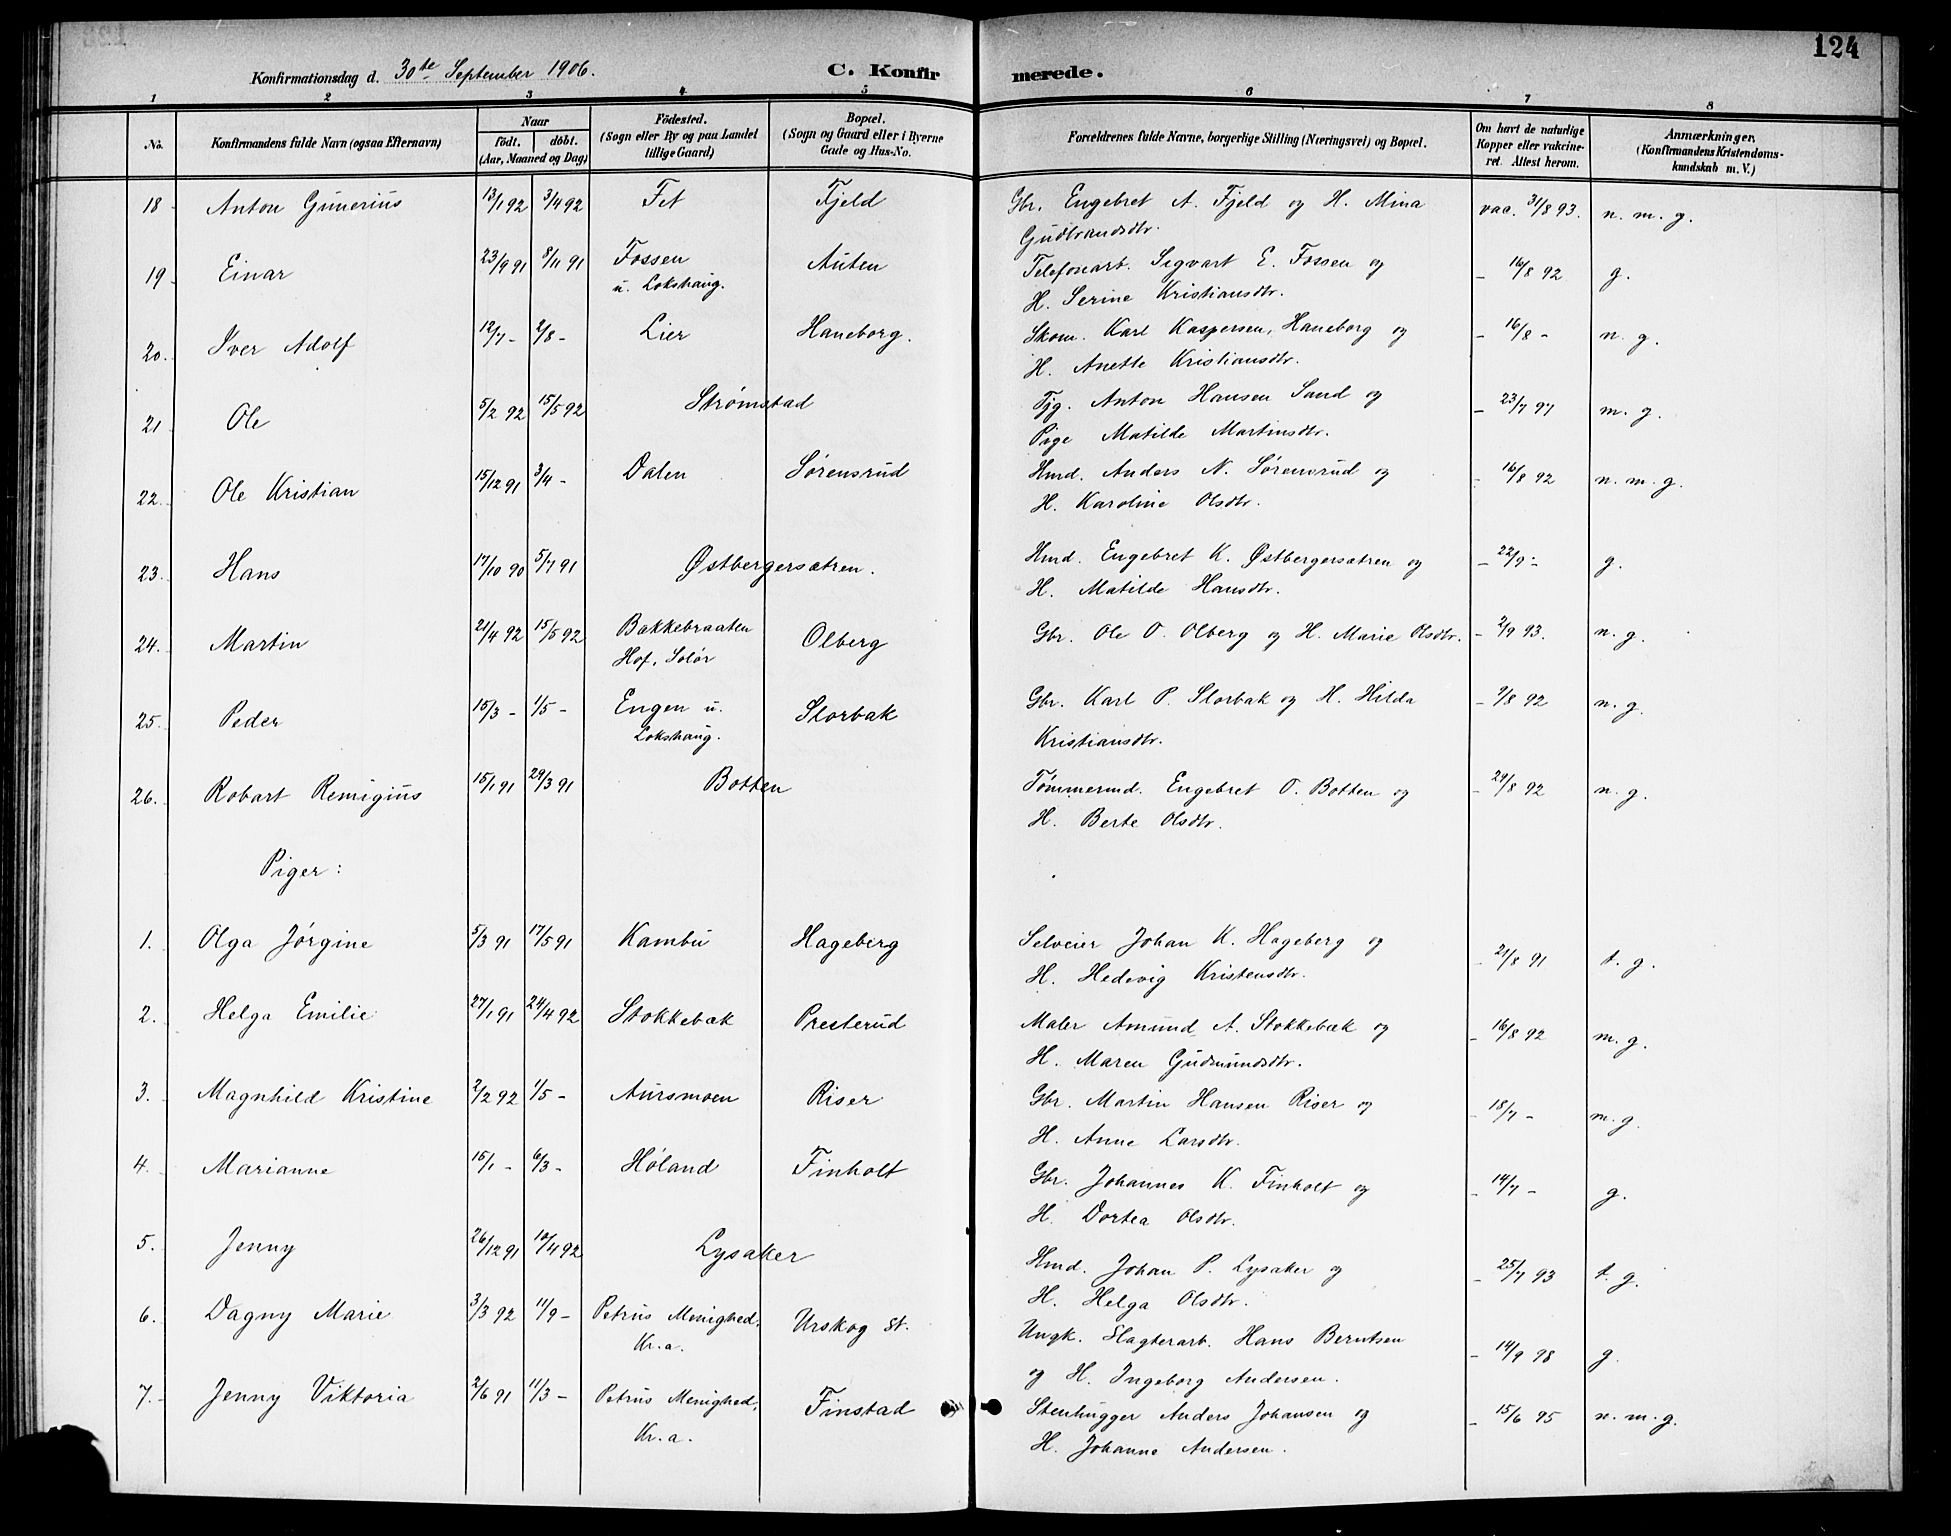 124
Konfirmationsdag d. 30te September 1906. C. Konfir merede.
1 2 3 4 5 6 7 8
No. Konfirmandens fulde Navn (ogsaa Efternavn) Naar födt. döbt. (Aar, Maaned og Dag) Födested. (Sogn eller By og paa Landet tillige Gaard) Bopæl. (Sogn og Gaard eller i Byerne Gade og Hus-No. Forældrenes fulde Navne, borgerlige Stilling (Næringsvei) og Bopæl. Om havt de naturlige Kopper eller vakcineret. Attest herom. Anmærkninger, (Konfirmandens Kristendomskundskab m. V.)
18 Anton Gunerius 13/1 92 3/4 92 Fet Fjeld Gbr. Engebret A. Fjeld og H. Mina vac. 31/8 93. n. m. g.
Gudbrandsdtr.
19 Einar 23/9 91 8/11 91 Fossen Auten Telefonarb. Sigvart E. Fossen og - 16/8 92 g.
u. Lokshaug. H. Serine Kristiansdtr.
20. Iver Adolf 12/7 - 2/8 - Lier Haneborg. Skom. Karl Kaspersen, Haneborg og - 16/8 - n. g.
H. Anette Kristiansdtr.
21 Ole 5/2 92 15/5 92 Strømstad Tjg. Anton Hansen Sand og - 23/7 97 m. g.
Pige Matilde Martinsdtr.
22. Ole Kristian 15/12 91 3/4 - Dalen Sørensrud Hmd. Anders N. Sørensrud og - 16/8 92 n. m. g.
H. Karoline Olsdtr.
23. Hans 17/10 90 5/7 91 Østbergersætren. Hmd. Engebret K. Østbergersætren og - 22/9 - g.
H. Matilde Hansdtr.
24. Martin 21/4 92 15/5 92 Bakkebraaten Olberg Gbr. Ole O. Olberg og H. Marie Olsdtr. - 2/9 93. n. g.
Hof, Solør
25. Peder 15/3 - 1/5 - Engen u. Storbak Gbr. Karl P. Storbak og H. Hilda - 9/8 92 n. g.
Lokshaug. Kristiansdtr.
26. Robart Remigius 15/1 91 29/3 91 Botten Tømmermd. Engebret O. Botten og - 29/8 92 n. g.
H. Berte Olsdtr.
Piger:
1. Olga Jørgine 5/3 91 17/5 91 Kambu Hageberg Selveier Johan K. Hageberg og - 21/8 91 t. g.
H. Hedevig Kristensdtr.
2. Helga Emilie 27/1 91 24/4 92 Stokkebæk Presterud Maler Amund A. Stokkebæk og - 16/8 92 m. g.
H. Maren Gudmundsdtr.
3. Magnhild Kristine 2/2 92 1/5 - Aursmoen Riser Gbr. Martin Hansen Riser og - 18/7 - m. g.
H. Anne Larsdtr.
4. Marianne 15/1 - 6/3 - Høland Finholt Gbr. Johannes K. Finholt og - 14/7 - g.
H. Dortea Olsdtr.
5. Jenny 26/12 91 10/4 92 Lysaker Hmd. Johan P. Lysaker og - 25/7 93 t. g.
H. Helga Olsdtr.
6. Dagny Marie 3/3 92 11/9 - Petrus Menighed, Urskog st. Ungk. Slagterarb. Hans Berntsen - 14/9 98 g.
Kr.a. og H. Ingeborg Andersen.
7. Jenny Viktoria 2/6 91 11/3 - Petrus Menighed, Finstad Stenhugger Anders Johansen og - 15/6 95 n. m. g.
Kr.a. H. Johanne Andersen.